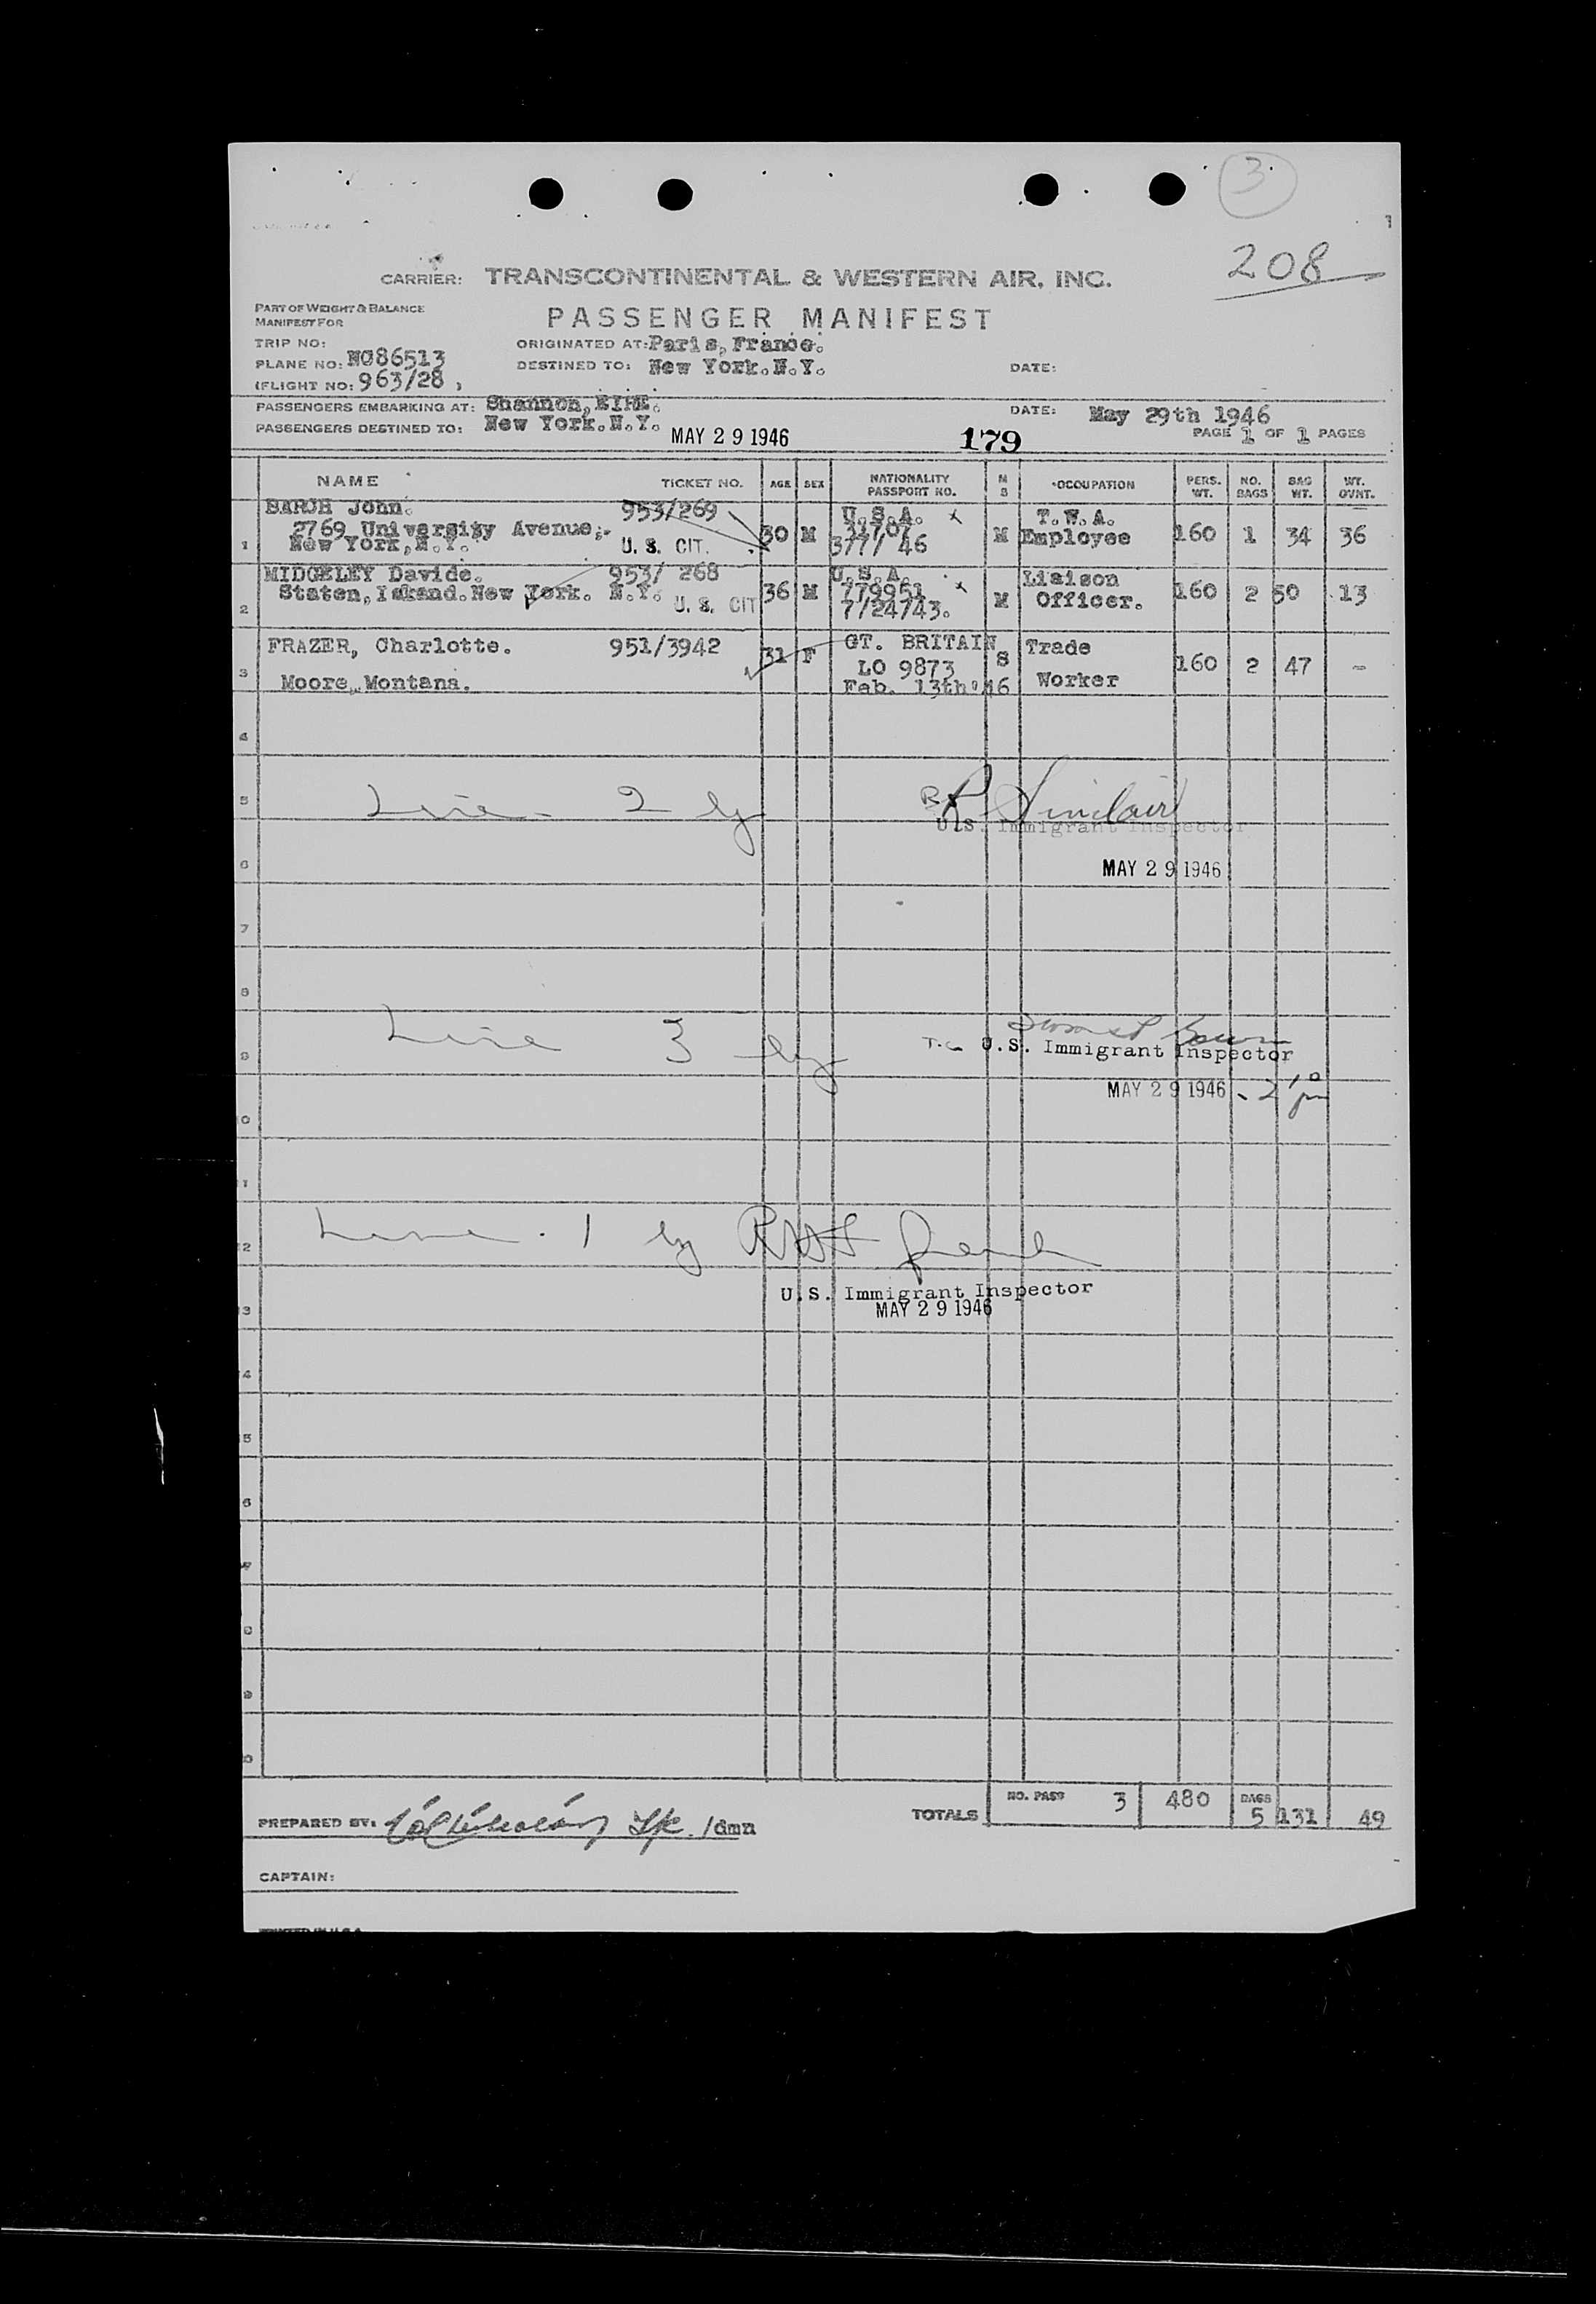 3
208
CARRIER: TRANSCONTINENTAL & WESTERN AIR, INC.
PART OF WEIGHT & BALANCE
MANIFEST FOR
PASSENGER MANIFEST
TRIP NO:
ORIGINATED AT: Paris, France.
PLANE NO: NC86513
DESTINED TO: New York.N.Y.
DATE:
(FLIGHT NO: 963/28 )
PASSENGERS EMBARKING AT: Shannon, EIRE.
DATE: May 29th 1946
PASSENGERS DESTINED TO: New York.N.Y.
MAY 29 1946
179
PAGE 1 OF 1 PAGES
NAME TICKET NO. AGE SEX NATIONALITY PASSPORT NO. M S OCCUPATION PERS. WT. NO. BAGS BAG WT. WT. OVNT.
John. 953/269 U.S.A. x T.W.A.
1 2769 University Avenue, 30 M M Employee 160 1 34 36
New York, N.Y. U. S. CIT. 377/ 46
MIDGELEY Davide. 953/ 268 U.S.A. Liaison
2 Staten, Iskand. New York. N.Y. U. S. CIT 36 M 779951 x M Officer. 160 2 50 13
7/24/43.
FRAZER, Charlotte. 951/3942 31 F GT. BRITAIN S Trade
3 LO 9873 160 2 47 -
Moore, Montana. Feb. 13th'46 Worker
4
5
Line - 2 by R P Sinclair
U.S. Immigrant Inspector
6
MAY 29 1946
7
8
9
Line 3 by
U.S. Immigrant Inspector
MAY 29 1946 - 2 pm
10
11
12
Line - 1 by
U.S. Immigrant Inspector
13
MAY 29 1946
14
15
16
17
18
19
20
PREPARED BY: /dmn
TOTALS NO. PASS 3 480 BAGS 5 131 49
CAPTAIN:
PRINTED IN U.S.A.